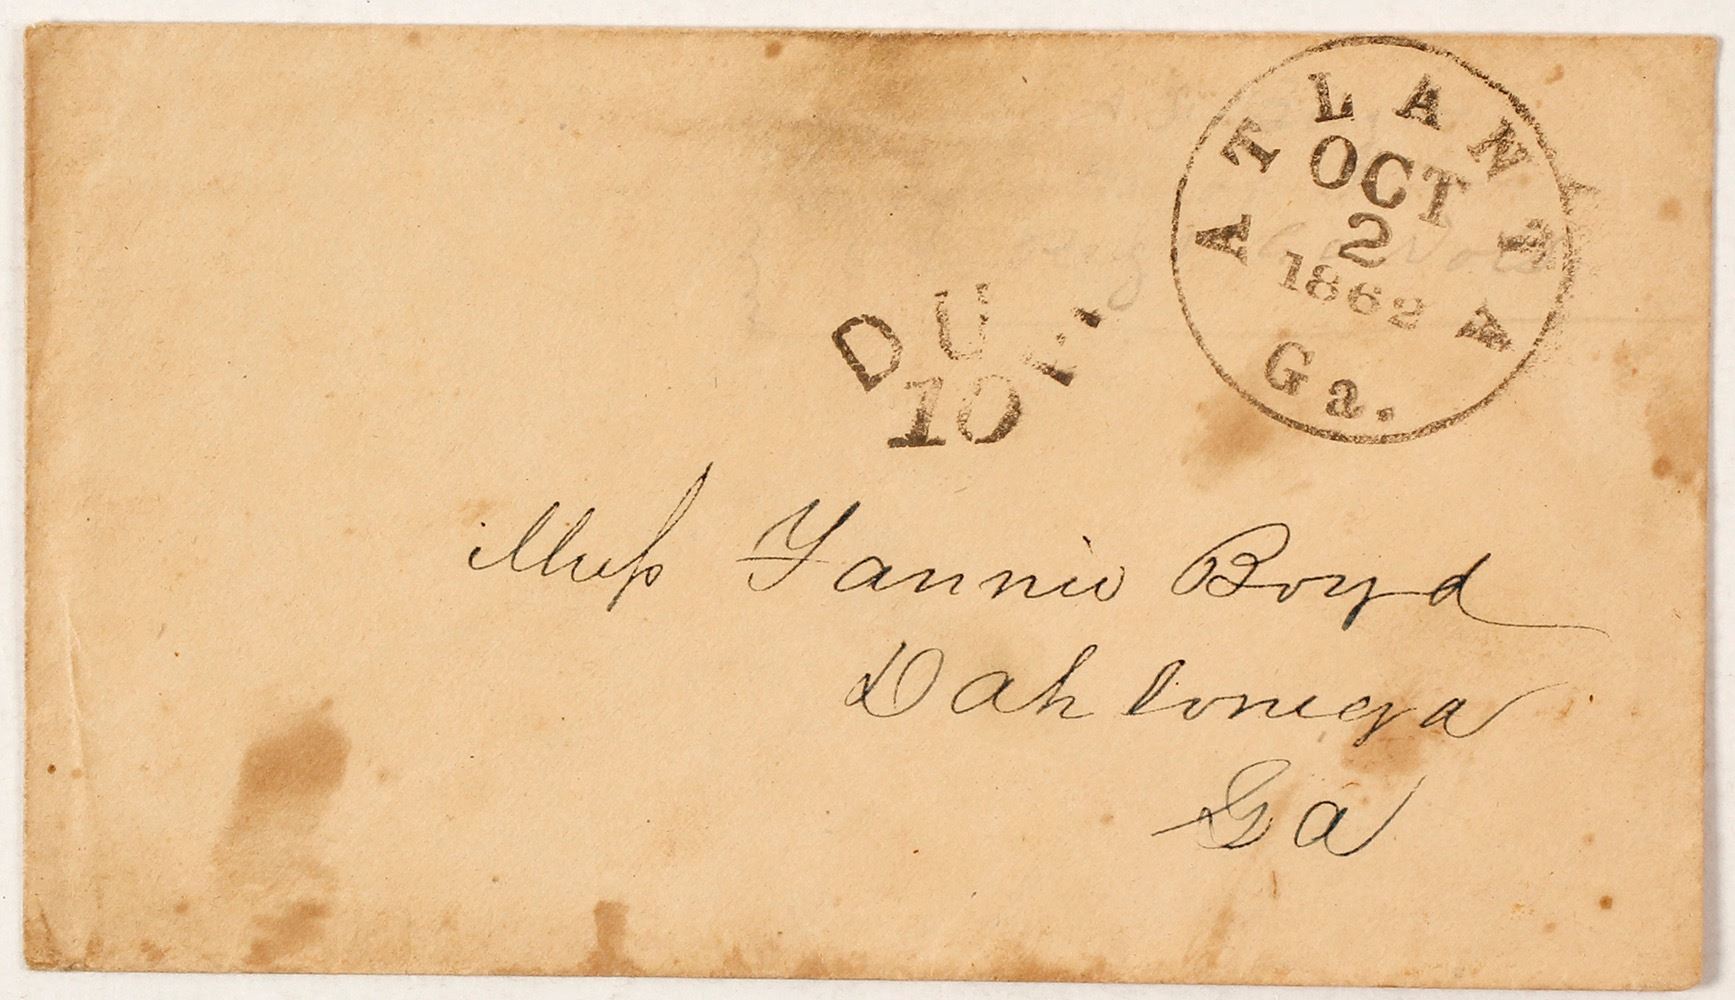 ATLANTA
OCT
2
1862
Ga.
DUE
10
Miss Fannie Boyd
Dahlonega
Ga